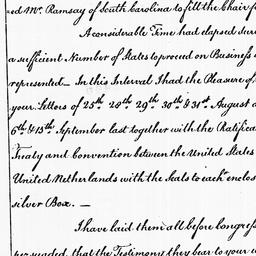 ed Mr. Ramsay of South Carolina to fill the Chair
A considerable Time had elapsed
a sufficient Number of States to proceed on Business
represented — In this Interval I had the Pleasure of
your Letters of 25th 28th 29th 30th & 31st August
6th & 15th September last together with the Ratifica
Treaty and Convention between the United States
United Netherlands with the Seals to each enclos
silver Box. —
I have laid them all before Congress
persuaded, that the Testimony they bear to your